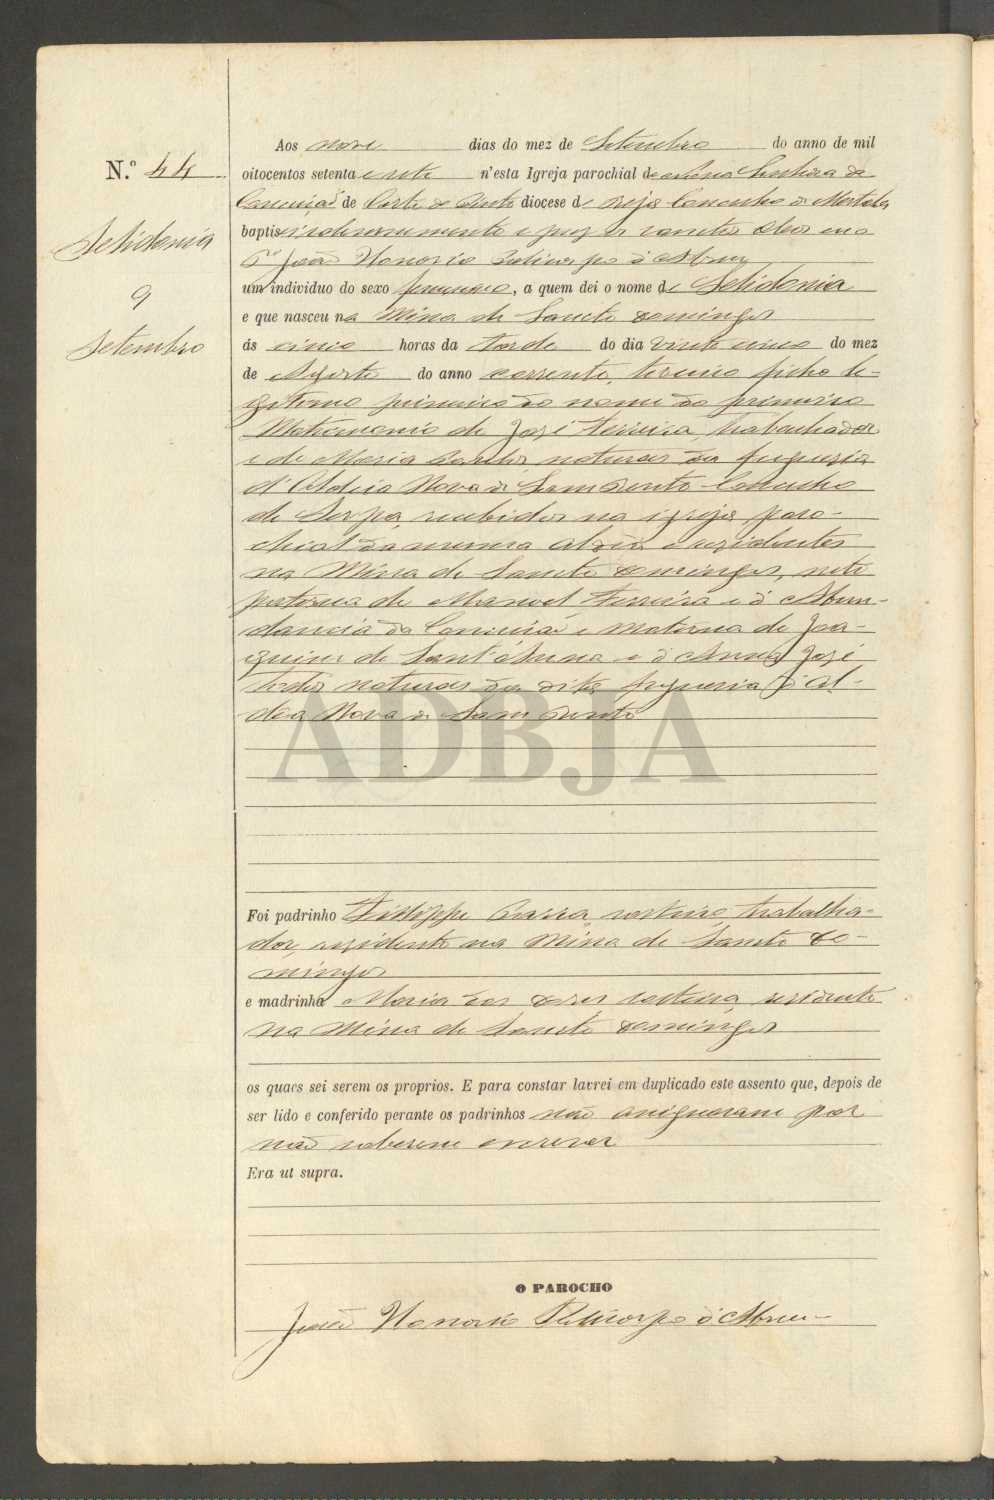 N.º 44
Selidonia
9
Setembro
Aos nove dias do mez de Setembro do anno de mil
oitocentos setenta e sete n'esta Igreja parochial de Nossa Senhora da
Conceição de Corte do Pinto diocese de Beja Concelho de Mertola
baptisei solemnemente e puz os sanctos oleos eu o
P.e João Honorio Policarpo d'Abreu
um individuo do sexo femenino, a quem dei o nome de Selidonia
e que nasceu na Mina de Sancto Domingos
ás cinco horas da tarde do dia vinte cinco do mez
de Agosto do anno corrente, terceiro filho le-
gitimo primeiro do nome do primeiro
Matrimonio de José Ferreira, trabalhador
e de Maria naturaes da freguezia
d'Aldeia Nova de Sam Bento Concelho
de Serpa, recebidos na igreja paro-
chial da mesma Aldeia e residentes
na Mina de Sancto Domingos, neta
paterna de Manoel Ferreira e d'Abun-
dancia da Conceição e Materna de Joa-
quim de Sant'Anna e d'Anna José
todos naturaes da dita freguezia d'Al-
deia Nova de Sam Bento
ADBJA
Foi padrinho Filippe solteiro, trabalha-
dor, residente na Mina de Sancto Do-
mingos
e madrinha Maria das Dores solteira, residente
na Mina de Sancto Domingos
os quaes sei serem os proprios. E para constar lavrei em duplicado este assento que, depois de
ser lido e conferido perante os padrinhos não assignaram por
não saberem escrever
Era ut supra.
O PAROCHO
João Honorio Policarpo d'Abreu